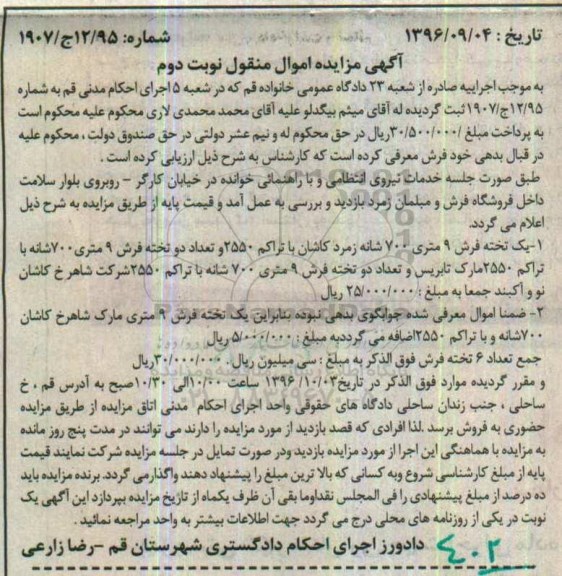 تاریخ : ۱۳۹۶/۰۹/۰۴ شماره: ۱۲/۹۵ج/۱۹۰۷
آگهی مزایده اموال منقول نوبت دوم
به موجب اجراییه صادره از شعبه ۲۳ دادگاه عمومی خانواده قم که در شعبه ۱۵اجرای احکام مدنی قم به شماره
۱۲/۹۵ج/۱۹۰۷ثبت گردیده له آقای میثم بیگدلو علیه آقای محمد محمدی لاری محکوم علیه محکوم است
به پرداخت مبلغ /۳۰/۵۰۰/۰۰۰ریال در حق محکوم له و نیم عشر دولتی در حق صندوق دولت ، محکوم علیه
در قبال بدهی خود فرش معرفی کرده است که کارشناس به شرح ذیل ارزیابی کرده است .
طبق صورت جلسه خدمات نیروی انتظامی و با راهنمائی خوانده در خیابان کارگر – روبروی بلوار سلامت
داخل فروشگاه فرش و مبلمان زمرد بازدید و بررسی به عمل آمد و قیمت پایه از طریق مزایده به شرح ذیل
اعلام می گردد.
۱-یک تخته فرش ۹ متری ۷۰۰ شانه زمرد کاشان با تراکم ۲۵۵۰و تعداد دو تخته فرش ۹ متری۷۰۰شانه با
تراکم ۲۵۵۰مارک تابریس و تعداد دو تخته فرش ۹ متری ۷۰۰ شانه با تراکم ۲۵۵۰شرکت شاهر خ کاشان
نو و آکبند جمعا به مبلغ : ۲۵/۰۰۰/۰۰۰ ریال
۲- ضمنا اموال معرفی شده جوابگوی بدهی نبوده بنابراین یک تخته فرش ۹ متری مارک شاهرخ کاشان
۷۰۰شانه و با تراکم ۲۵۵۰اضافه می گرددبه مبلغ : ۵/۰۰۰/۰۰۰ریال
جمع تعداد ۶ تخته فرش فوق الذکر به مبلغ : سی میلیون ریال ۳۰/۰۰۰/۰۰۰ریال
و مقرر گردیده موارد فوق الذکر در تاریخ۱۳۹۶/۱۰/۰۳ ساعت ۱۰/۰۰الی ۱۰/۳۰صبح به آدرس قم ، خ
ساحلی ، جنب زندان ساحلی دادگاه های حقوقی واحد اجرای احکام مدنی اتاق مزایده از طریق مزایده
حضوری به فروش برسد .لذا افرادی که قصد بازدید از مورد مزایده را دارند می توانند در مدت پنج روز مانده
به مزایده با هماهنگی این اجرا از مورد مزایده بازدید ودر صورت تمایل در جلسه مزایده شرکت نمایند قیمت
پایه از مبلغ کارشناسی شروع وبه کسانی که بالا ترین مبلغ را پیشنهاد دهند واگذارمی گردد. برنده مزایده باید
ده درصد از مبلغ پیشنهادی را فی المجلس نقداوما بقی آن ظرف یکماه از تاریخ مزایده بپردازد این آگهی یک
نوبت در یکی از روزنامه های محلی درج می گردد جهت اطلاعات بیشتر به واحد مراجعه نمائید .
دادورز اجرای احکام دادگستری شهرستان قم –رضا زارعی
۴۰۲